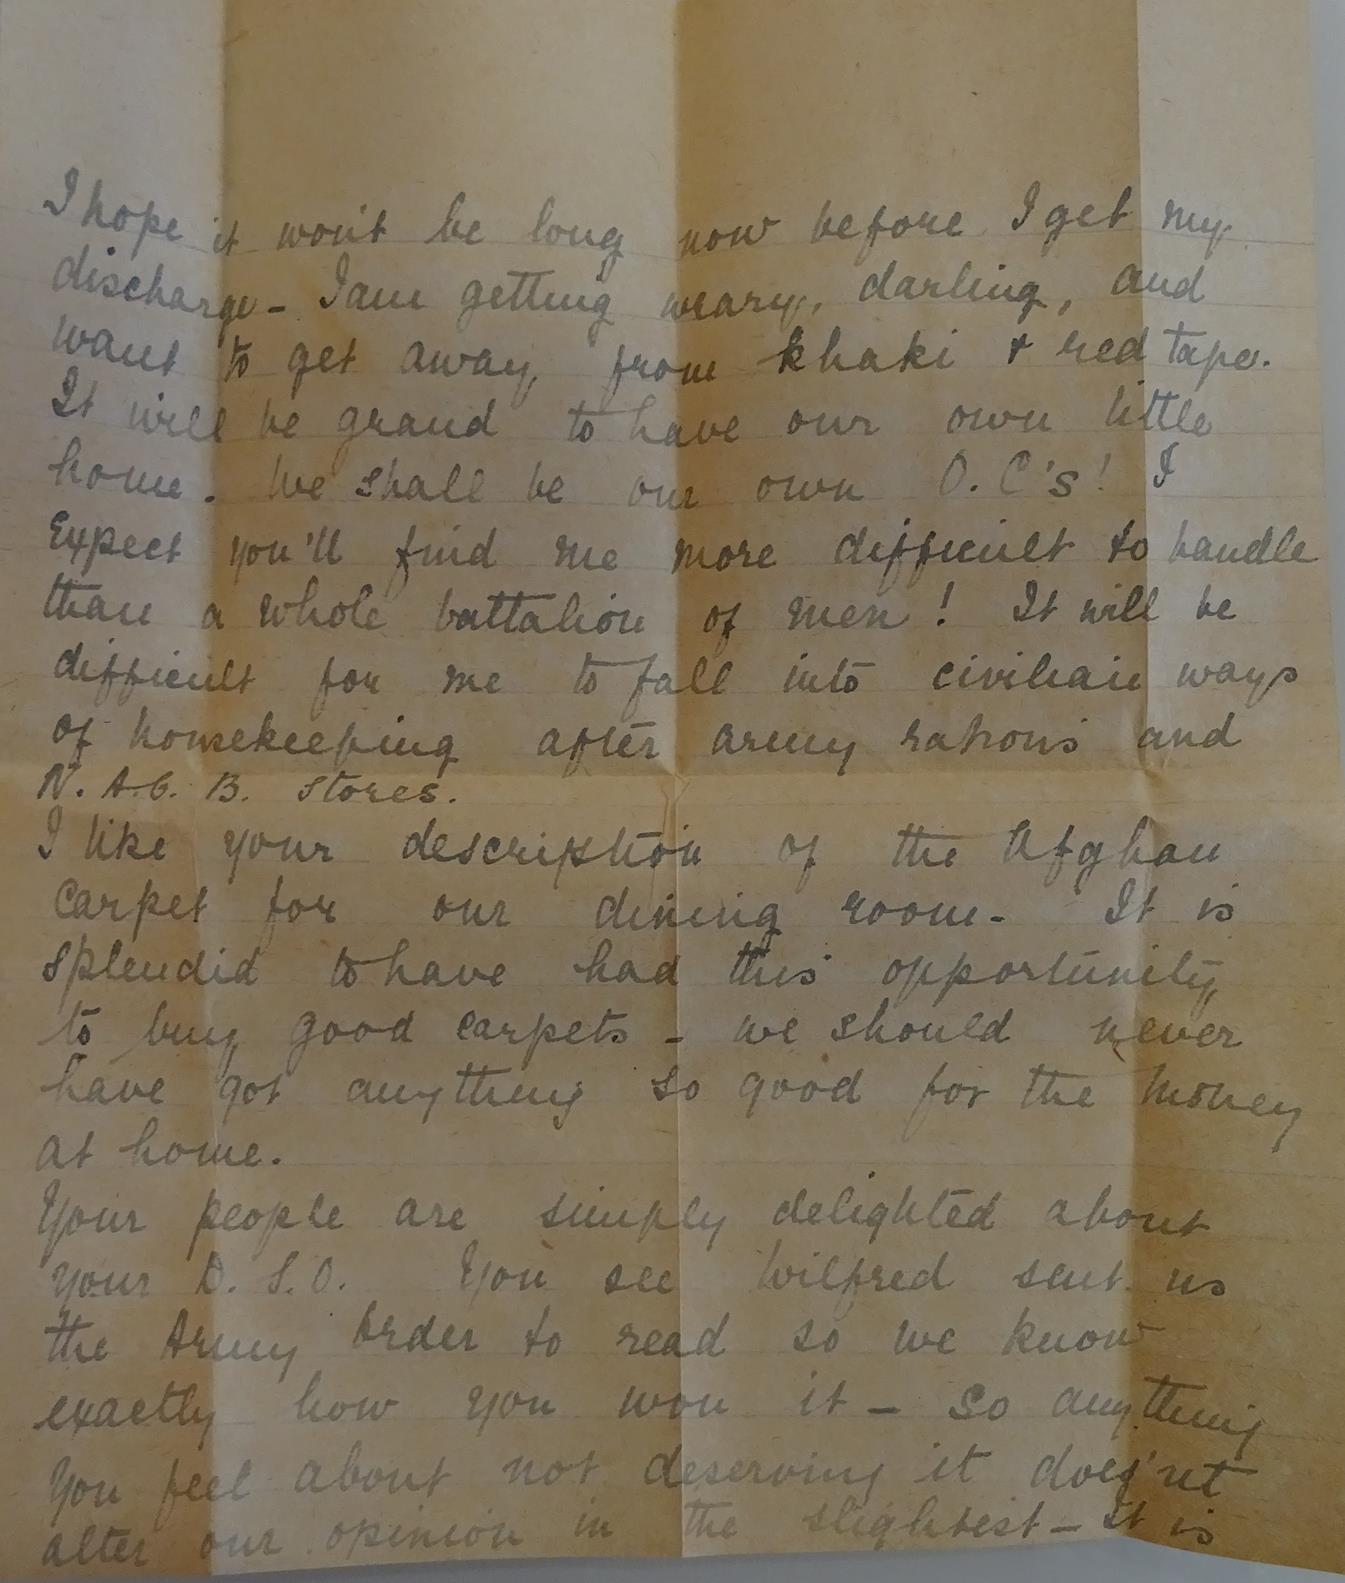 I hope it won't be long now before I get my
discharge - I am getting weary, darling, and
want to get away from khaki + red tape.
It will be grand to have our own little
home. We shall be our own O.C's! I
expect you'll find me more difficult to handle
than a whole battalion of men! It will be
difficult for me to fall into civilian ways
of housekeeping after army rations and
N. A. C. B. Stores.
I like your description of the Afghan
carpet for our dining room. It is
splendid to have had this opportunity
to buy good carpets - we should never
have got anything so good for the money
at home.
Your people are simply delighted about
your D. S. O. You see Wilfred sent us
the Army Order to read so we know
exactly how you won it - so anything
you feel about not deserving it does'nt
alter our opinion in the slightest - It is